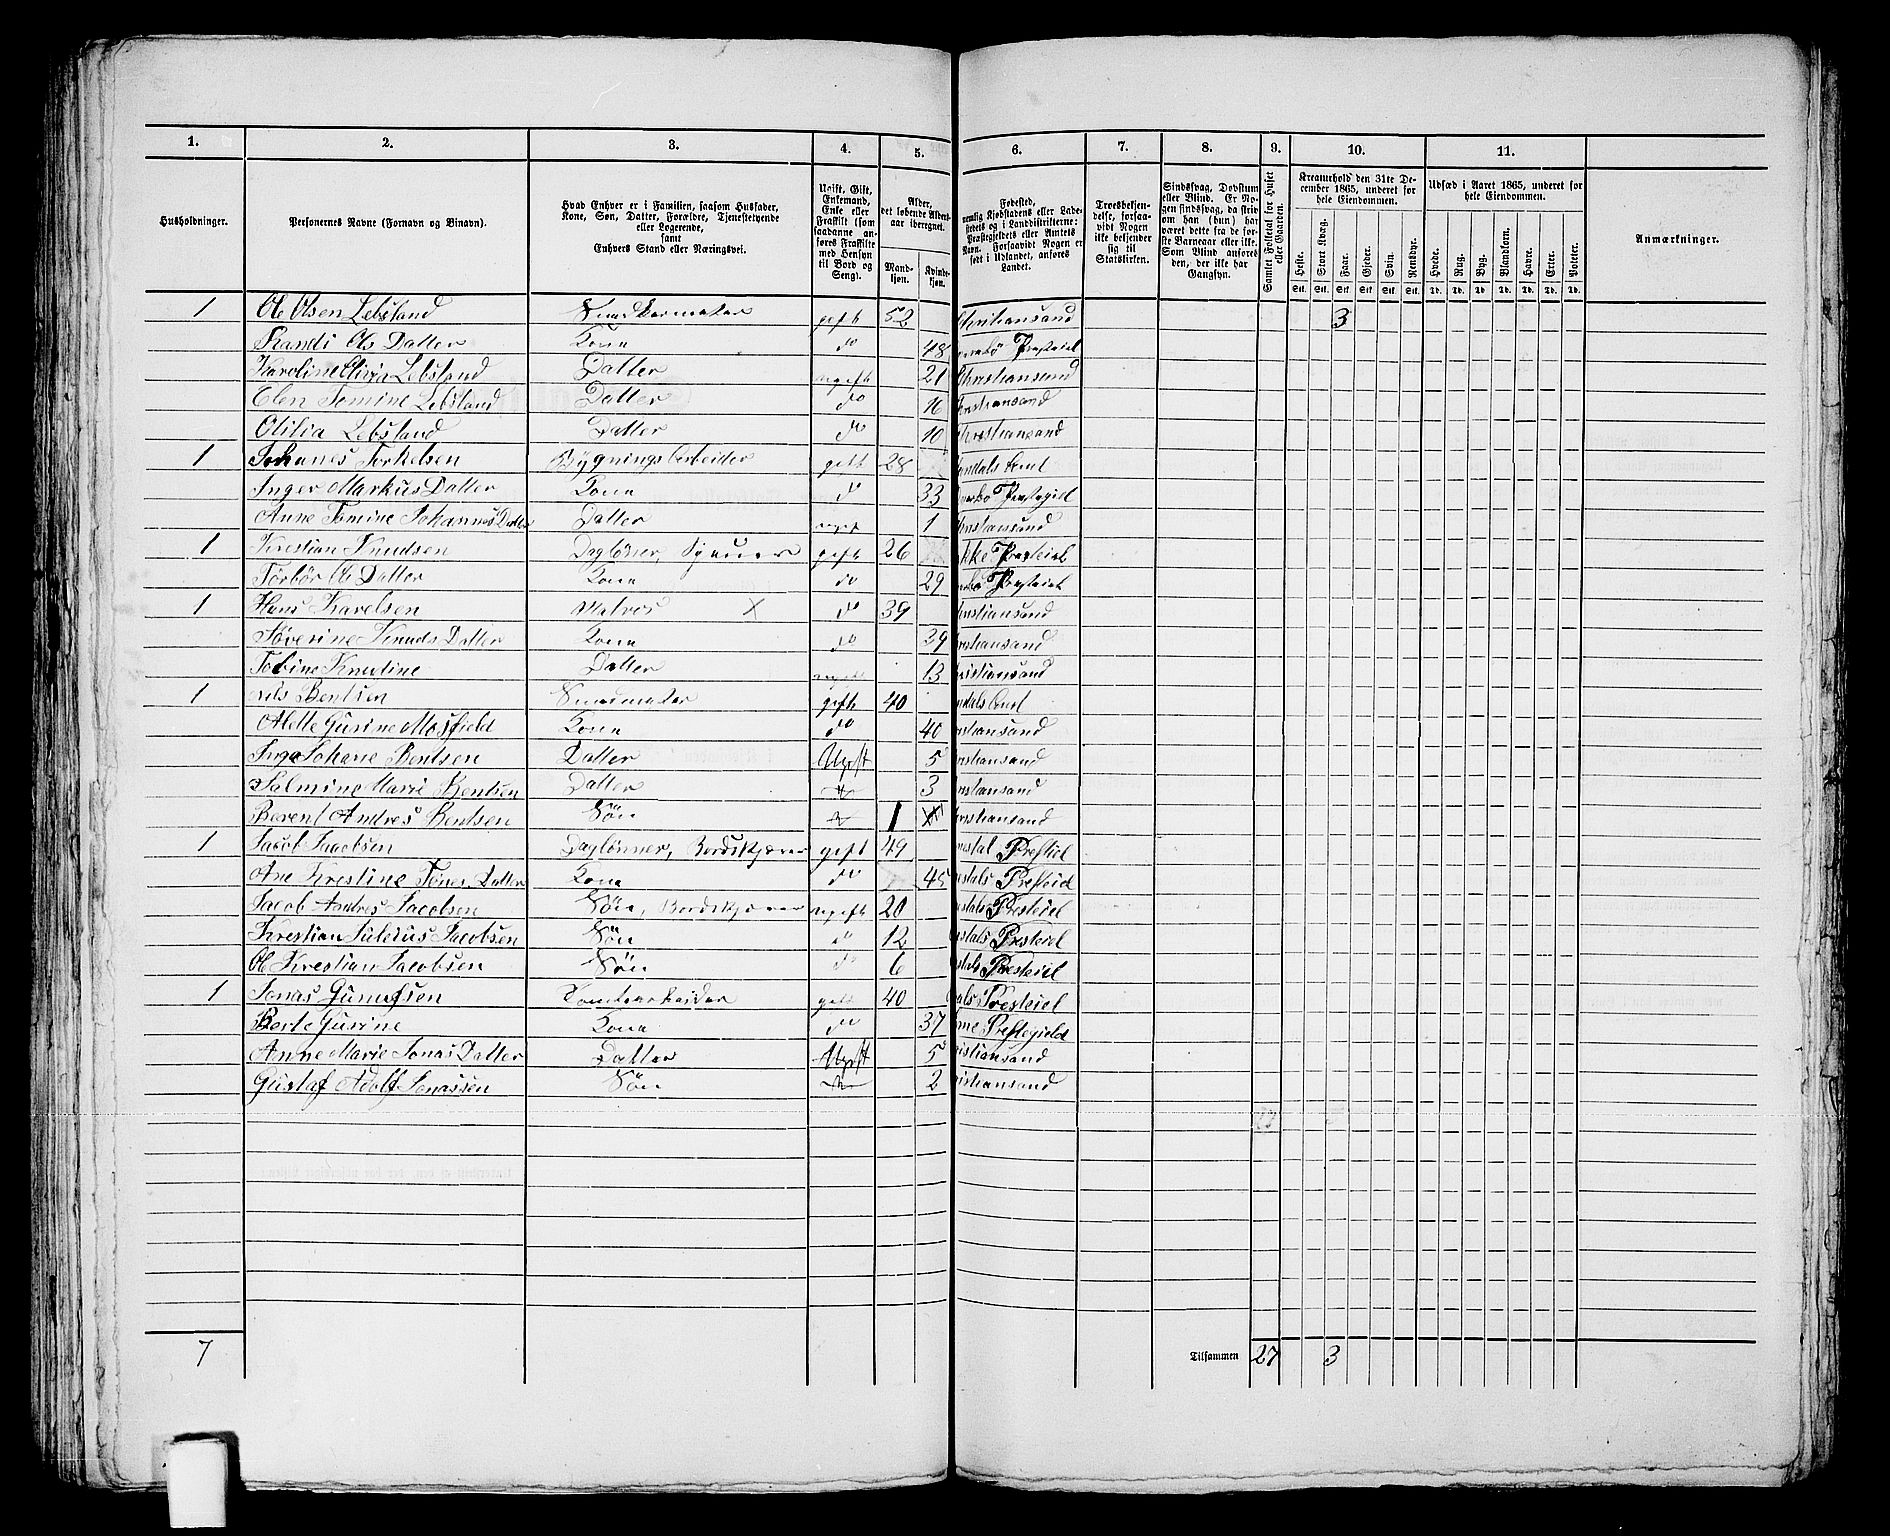 1. 2. 3. 4. 5. 6. 7. 8. 9. 10. 11.
Husholdninger.
Personernes Navne (Fornavn og Binavn).
Hvad Enhver er i Familien, saasom Husfader, Kone, Søn, Datter, Forældre, Tjenestetyende eller Logerende, samt Enhvers Stand eller Næringsvei.
Ugift, Gift, Enkemand, Enke eller Fraskilt (som saadanne anføres Fraskilte med Hensyn til Bord og Seng).
Alder, det løbende Alders-aar iberegnet.
Mandkjøn. Kvindekjøn.
Fødested, nemlig Kjøbstadens eller Ladestedets og i Landdistrikterne: Præstegjeldets eller Amtets Navn. Forsaavidt Nogen er født i Udlandet, anføres Landet.
Troesbekjendelse, forsaavidt Nogen ikke bekjender sig til Statskirken.
Sindssvag, Døvstum eller Blind. Er Nogen sindssvag, da skriv om han (hun) har været dette fra de første Barneaar eller ikke. Som Blind anføres den, der ikke har Gangsyn.
Samlet Folketal for Huset eller Gaarden.
Kreaturhold den 31te December 1865, underet for hele Eiendommen.
Heste. Stort Kvæg. Faar. Gjeder. Svin. Rensdyr.
Stk. Stk. Stk. Stk. Stk. Stk.
Udsæd i Aaret 1865, underet for hele Eiendommen.
Hvede. Rug. Byg. Blandkorn. Havre. Erter. Poteter.
Td. Td. Td. Td. Td. Td. Td.
Anmærkninger.
1 Ole Olsen Lebsland gift 52 Christiansand 3
Ols Datter Kone do 48
Karoline Olivia Lebsland Datter ugift 21 Christiansand
Elen Tomine Lebsland Datter do 16 Christiansand
Otilia Lebsland Datter do 10 Christiansand
1 Johanes Torkelsen Bygnings Arbeider gift 28 Mandals Amt
Inger Markus Datter Kone do 33
Anne Tomine Johannes Datter Datter ugift 1 Christiansand
1 Krestian Knudsen Daglöner, gift 26
Torbör Ole Datter Kone do 29
1 Hans Karelsen Matros X do 39 Christiansand
Söverine Knuds Datter Kone do 39 Christiansand
Tobine Knutine Datter ugift 13 Christiansand
1 Nils Bentsen gift 40 Mandals Amt
Alette Gurine Mosfjeld Kone do 40 Christiansand
Inga Johane Bentsen Datter Ugift 5 Christiansand
Salmine Marie Bentsen Datter 3 Christiansand
Berent Andres Bentsen Sön 1 Christiansand
1 Jacob Jacobsen Daglönner, Bordskjærer gift 49
Ane Krestine Tönes Datter Kone do 45
Jacob Andres Jacobsen Sön, Bordskjærer ugift 20
Krestian Julius Jacobsen Sön do 12
Ole Krestian Jacobsen Sön do 6
1 Jonas Gunufsen gift 40
Berte Gurine Kone do 37
Anne Marie Jonas Datter Datter Ugift 5 Christiansand
Gustaf Adolf Jonassen Sön 2 Christiansand
7 Tilsammen 27 3